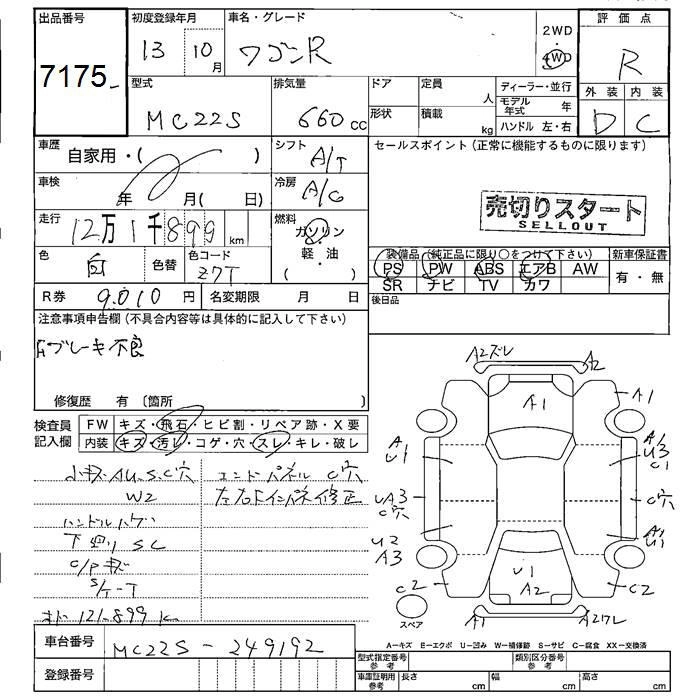 出品番号 初度登録年月 車名・グレード 2WD 評価点
7175 13 10月 ワゴンR 4WD R
型式 排気量 ドア 定員 人 ディーラー・並行 外装 内装
MC22S 660cc 形状 積載 kg モデル年式 年 D C
ハンドル 左・右
車歴 自家用・( ) シフト A/T セールスポイント(正常に機能するものに限ります)
車検 年 月( 日) 冷房 A/C
売切りスタート
SELLOUT
走行 12万1千899km 燃料 ガソリン
軽・油
( )
色 白 色替 色コード Z7T 装備品(純正品に限り○をつけて下さい) 新車保証書
PS PW ABS エアB AW 有・無
SR ナビ TV カワ
R券 9.010円 名変期限 月 日 後日品
注意事項申告欄(不具合内容等は具体的に記入して下さい)
Fブレーキ不良
修復歴 有〔箇所 〕
検査員記入欄 FW キズ・飛石・ヒビ割・リペア跡・X要
内装 キズ・汚レ・コゲ・穴・スレ・キレ・破レ
小キズ AU.S.C穴 エンドパネル C穴
W2 左右Fインパネ修正
ハンドルハゲ
下廻り SC
C/Pキズ
S/ケーT
オド 121.899K
A2ズレ A2
A1 A1
A U1 A1 U3 C1
UA3 C穴 C穴
U2 A3 A1 U1
C2 U1 A2 C2
スペア A1 A2ワレ
A―キズ E―エクボ U―凹み W―補修跡 S―サビ C―腐食 XX―交換済
車台番号 MC22S-249192
型式指定番号 参考 類別区分番号 参考
登録番号 車庫証明用 参考 長さ cm 幅 cm 高さ cm